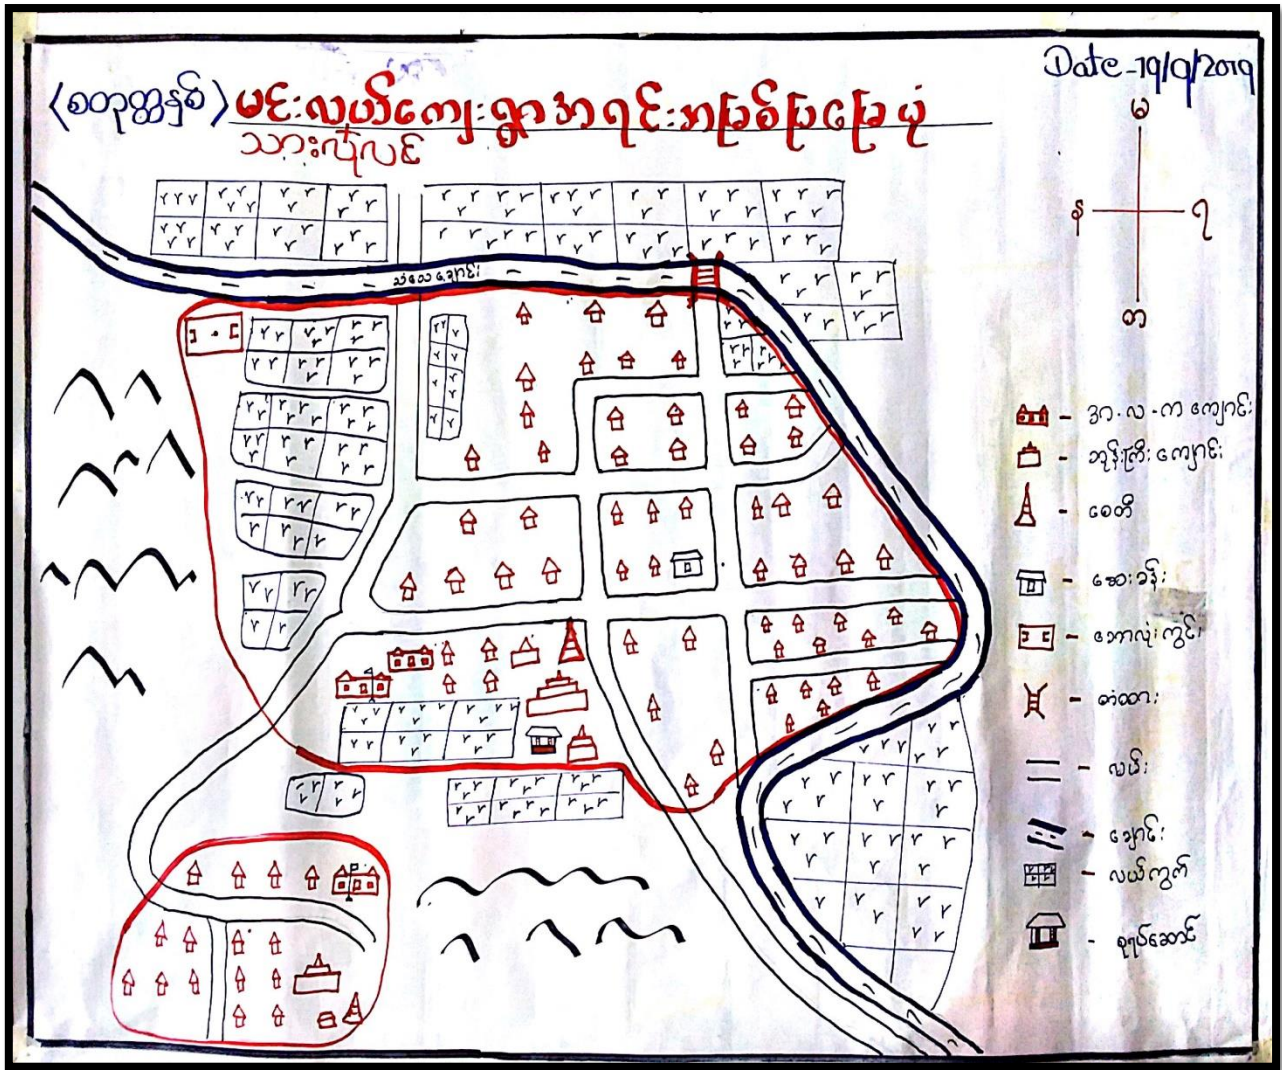 Date - 19/9/2019
<စတုတ္ထနှစ်> မင်းလှယ်ကျေးရွာအရင်းအမြစ်ပြမြေပုံ
သားလှလင်
မ
န
ရ
တ
- အ.လ.က ကျောင်း
- ဘုန်းကြီးကျောင်း
- စေတီ
- ဆေးခန်း
- ဘောလုံးကွင်း
- တံတား
- လမ်း
- ချောင်း
- လယ်ကွက်
- စုရပ်ဆောင်